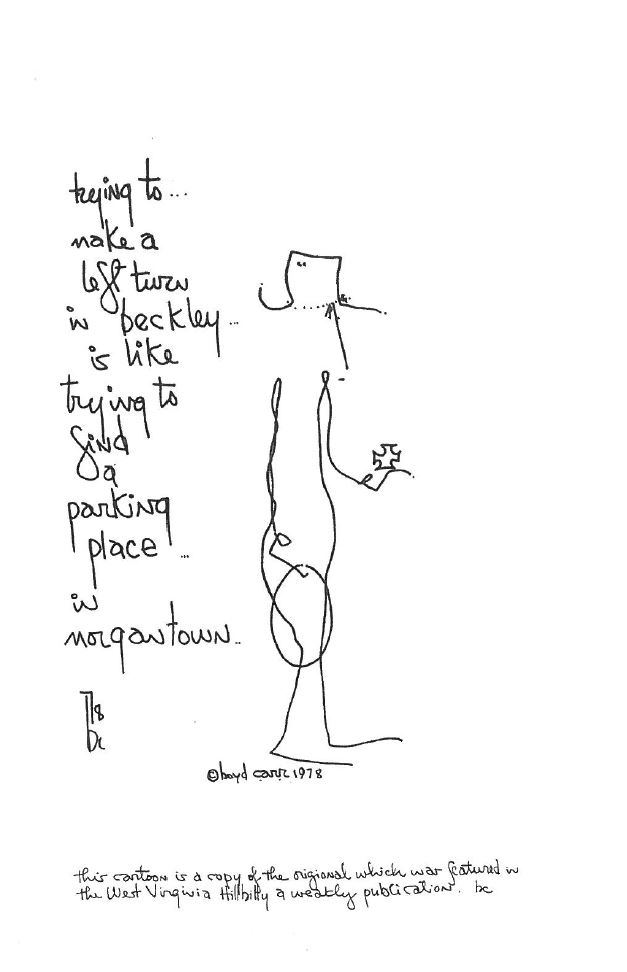 trying to...
make a
left turn
in beckley...
is like
trying to
find
a
parking
place...
in
morgantown...
78
bc
©boyd carr 1978
this cartoon is a copy of the origional which was featured in
the West Virginia Hillbilly a weakly publication. bc